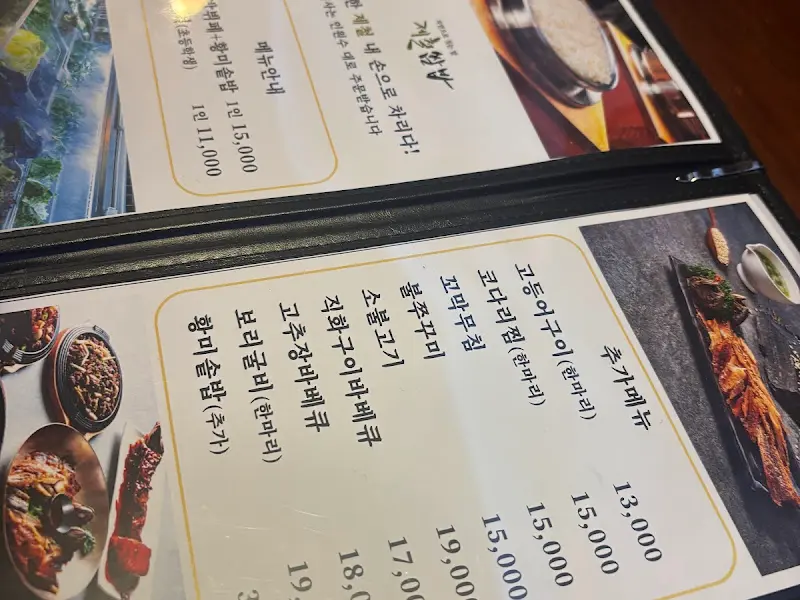 제철쌈밥
한 체험 내 손으로 차리다!
사는 인원수 대로 주문받습니다
메뉴안내
쌈뷔페+황미솥밥 1인 15,000
(초등학생) 1인 11,000
추가메뉴
고등어구이(한마리) 13,000
코다리찜(한마리) 15,000
꼬막무침 15,000
불쭈꾸미 15,000
소불고기 19,000
직화구이바베큐 17,00
고추장바베큐 18,0
보리굴비(한마리) 19,
황미솥밥(추가) 3